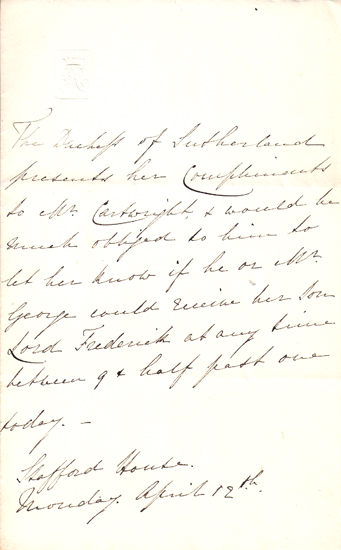 The Duchess of Sutherland
presents her Compliments
to Mr. Cartwright, & would be
much obliged to him to
let her know if he or Mr.
George could receive her Son
Lord Frederick at any time
between 9 & half past one
today. –
Stafford House.
Monday. April 12th.